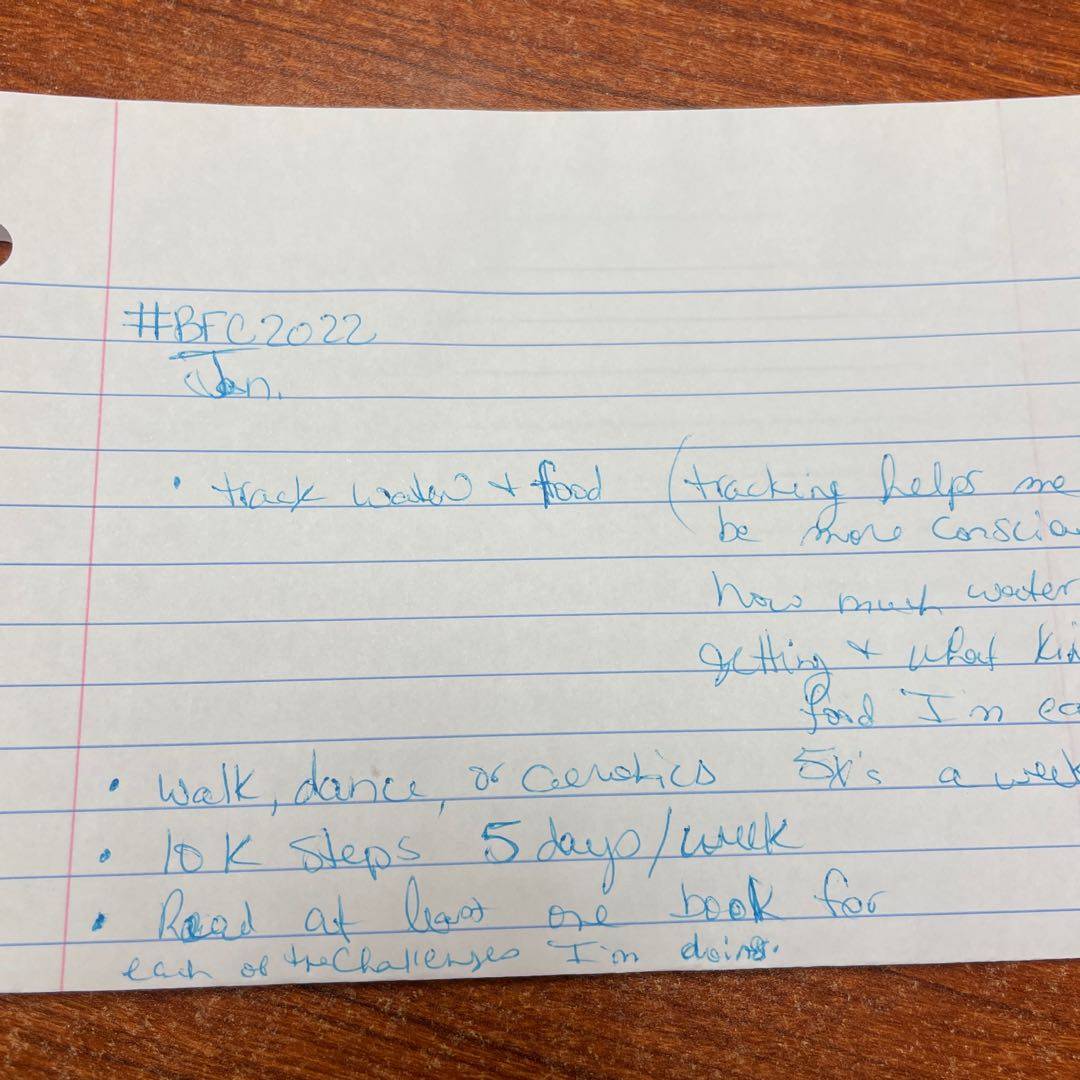 #BFC2022
Jan.
• track water + food (tracking helps me
be more conscio
how much water
getting + what kin
food I'm ea
• walk, dance, or aerobics 5x's a week
• 10K steps 5 days/week
• Read at least one book for
each of the challenges I'm doing.